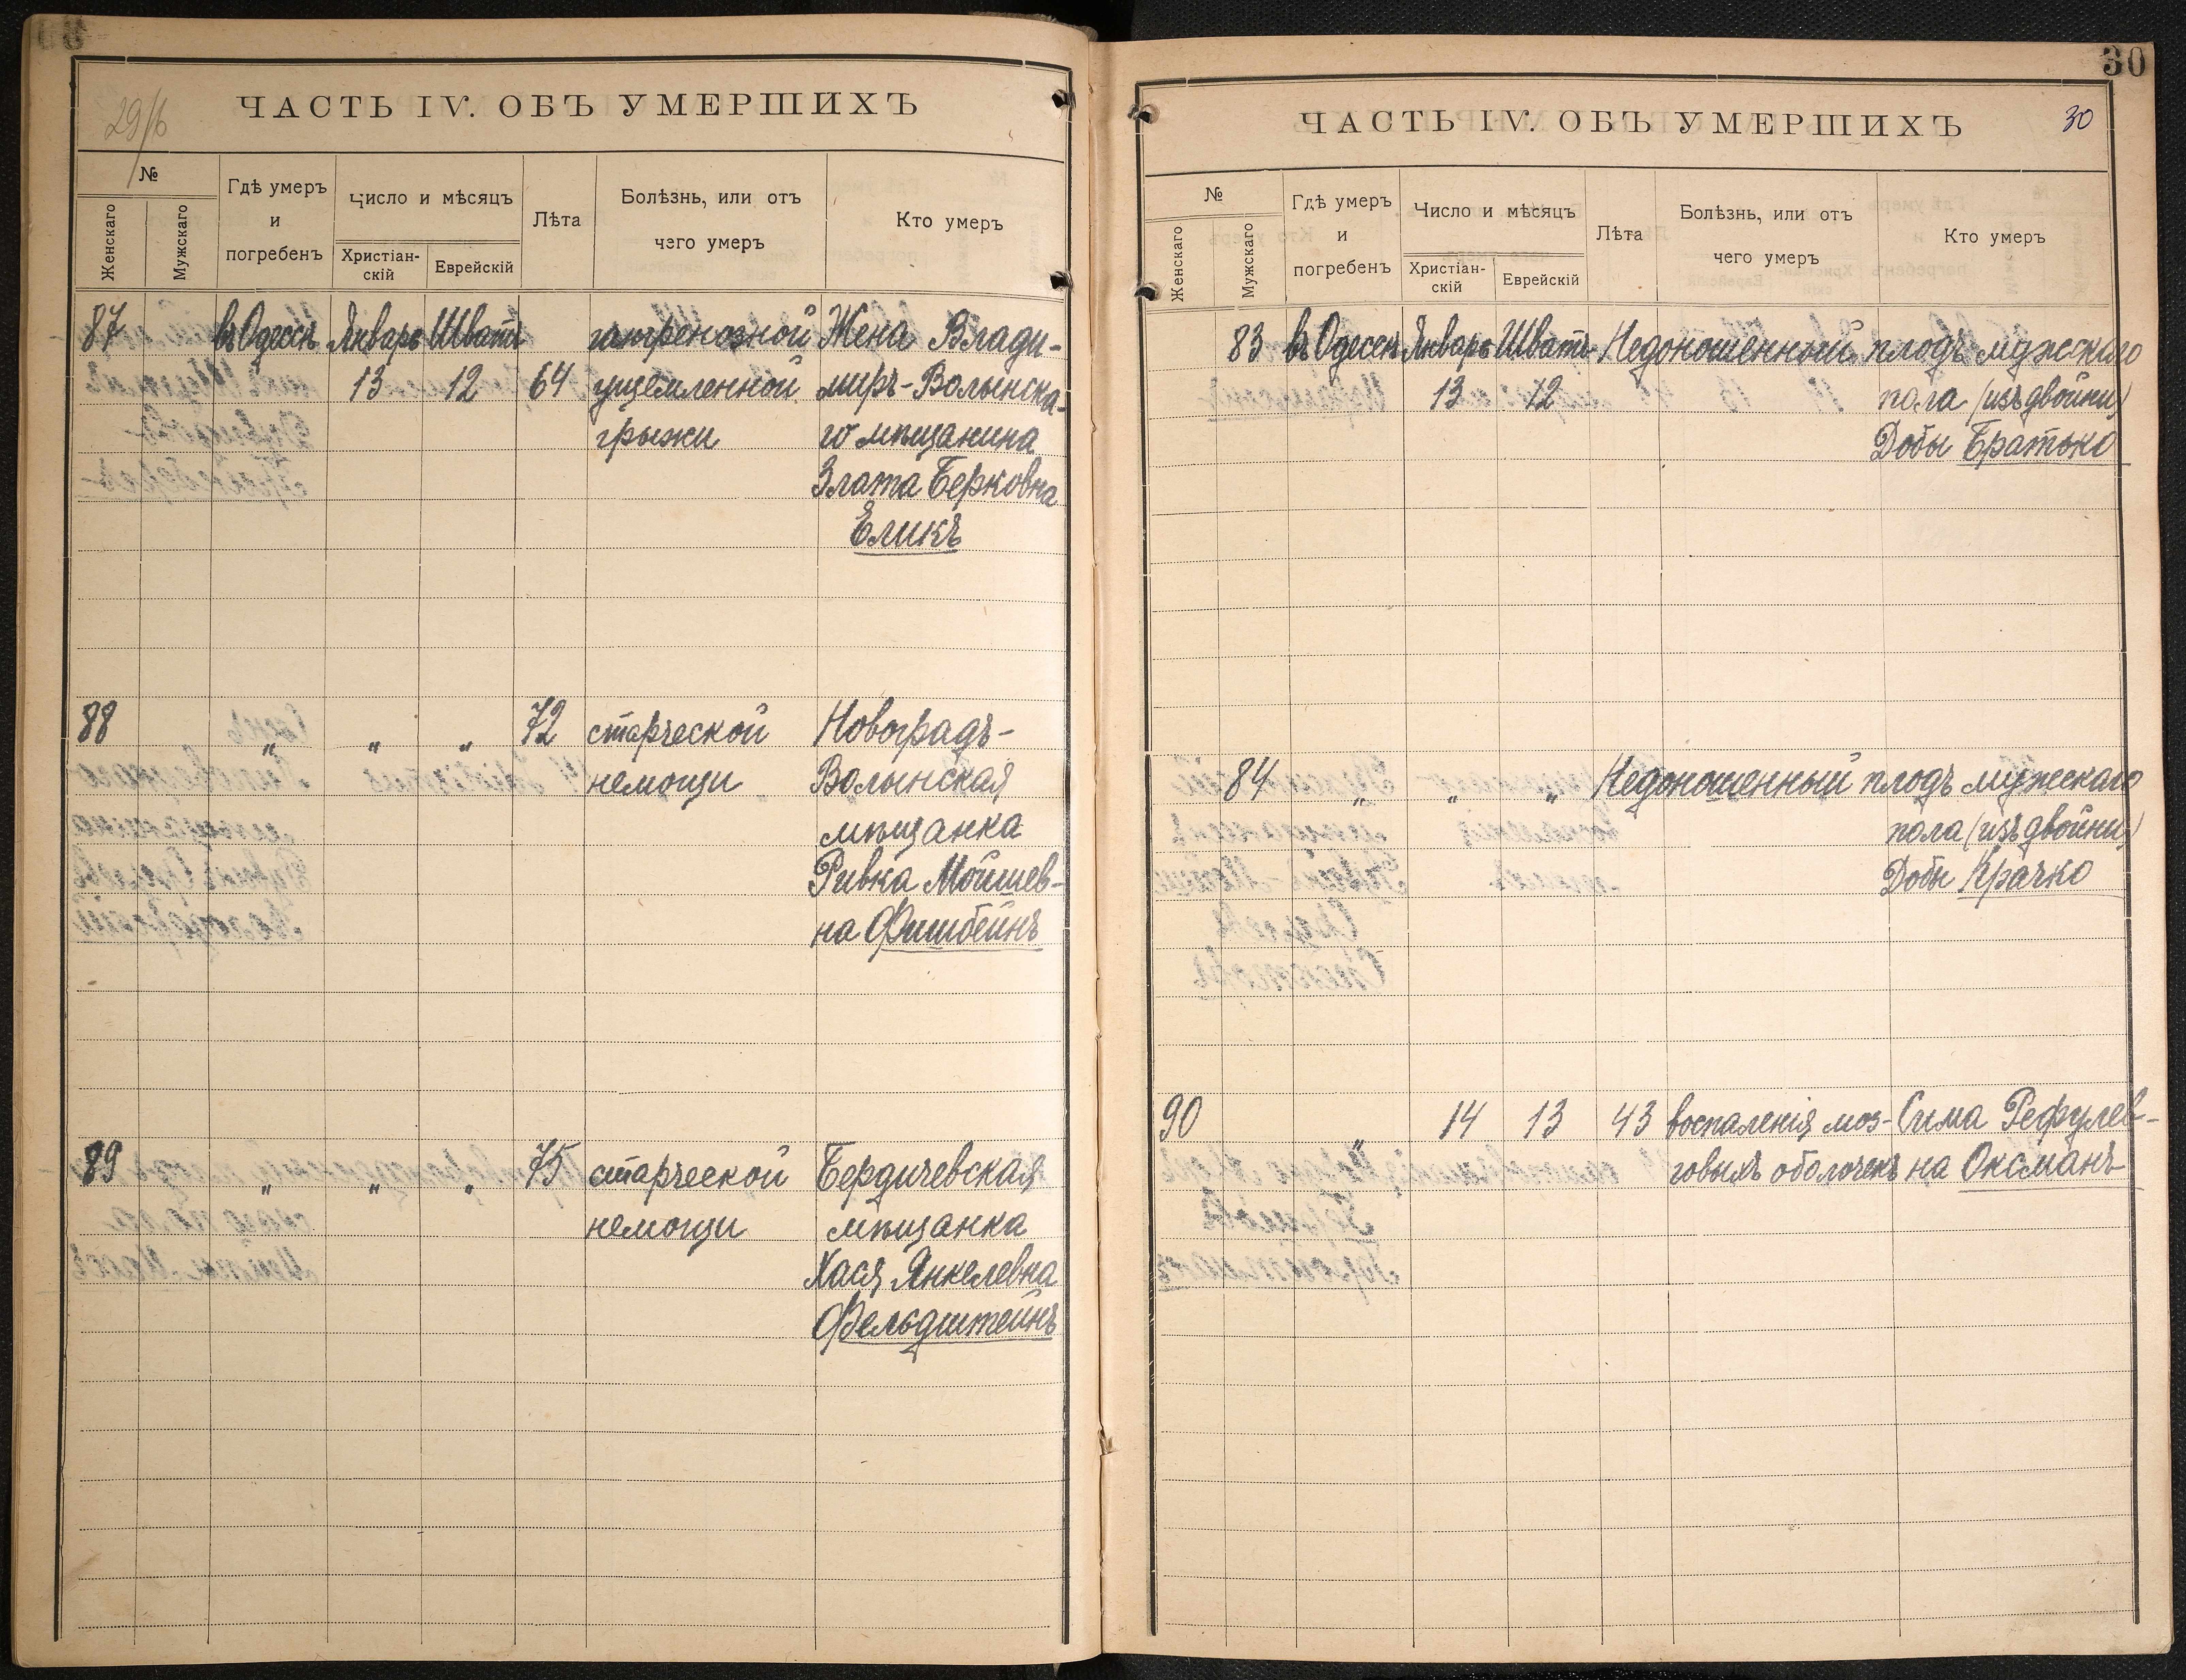 29/б
ЧАСТЬ IV. ОБЪ УМЕРШИХЪ
№
Женскаго
Мужскаго
Гдѣ умеръ
и
погребенъ
Число и мѣсяцъ
Христіан-
скій
Еврейскій
Лѣта
Болѣзнь, или отъ
чего умеръ
Кто умеръ
87 въ Одессѣ Январь Шватъ гангренозной Жена Влади-
13 12 64 ущемленной миръ-Волынска-
грыжи го мѣщанина
Злата Берковна
Еликъ
88 „ „ „ 72 старческой Новоградъ-
немощи Волынская
мѣщанка
Ривка Мойшев-
на Фишбейнъ
89 „ „ „ 75 старческой Бердичевская
немощи мѣщанка
Хася Янкелевна
Фельдштейнъ
30
ЧАСТЬ IV. ОБЪ УМЕРШИХЪ 30
№
Женскаго
Мужскаго
Гдѣ умеръ
и
погребенъ
Число и мѣсяцъ
Христіан-
скій
Еврейскій
Лѣта
Болѣзнь, или отъ
чего умеръ
Кто умеръ
83 въ Одессѣ Январь Шватъ Недоношенный плодъ мужскаго
13 12 пола (изъ двойни)
Добы Братько
84 „ „ „ Недоношенный плодъ мужескаго
пола (изъ двойни)
Добы Крачко
90 „ 14 13 43 воспаленія моз- Сима Рефулев-
говыхъ оболочекъ на Оксманъ